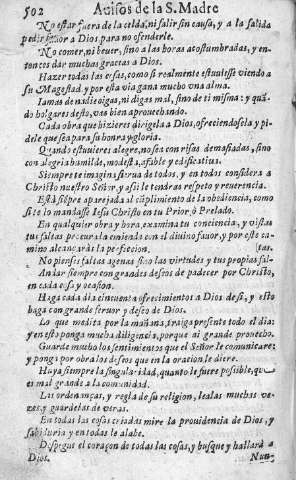 502 Auisos de la S. Madre
No estar fuera de la celda, ni salir sin causa, y a la salida
pedir fauor a Dios para no ofenderle.
No comer, ni beuer, sino a las horas acostumbradas, y en-
tonces dar muchas gracias a Dios.
Hazer todas las cosas, como si realmente estuuiesse viendo a
su Magestad, y por esta via gana mucho vna alma.
Iamas de nadie oigas, ni digas mal, sino de ti misma: y quã-
do holgares desto, vas bien aprouechando.
Cada obra que hizieres dirigela a Dios, ofreciendosela y pi-
dele que sea para su honra y gloria.
Quando estuuieres alegre, no sea con risas demasiadas, sino
con alegria humilde, modesta, afable y edificatiua.
Siempre te imagina sierua de todos, y en todos considera a
Christo nuestro Señor, y assi le tendras respeto y reuerencia.
Està siẽpre aparejada al cũplimiento de la obediencia, como
si te lo mandasse Iesu Christo en tu Prior, ò Prelado.
En qualquier obra y hora, examina tu conciencia, y vistas
tus faltas procura la emienda con el diuino fauor, y por este ca-
mino alcançaràs la perfeccion.
No pienses faltas agenas sino las virtudes y tus propias fal-
tas.
Andar siempre con grandes deseos de padecer por Christo,
en cada cosa y ocasion.
Haga cada dia cincuenta ofrecimientos a Dios de si, y esto
haga con grande feruor y deseo de Dios.
Lo que medita por la mañana, traiga presente todo el dia;
y en esto ponga mucha diligencia, porque ai grande prouecho.
Guarde mucho los sentimientos que el Señor le comunicare;
y ponga por obra los deseos que en la oracion le diere.
Huya siempre la singularidad, quanto le fuere posible, que
es mal grande a la comunidad.
Las ordenanças, y regla de su religion, lealas muchas ve-
zes, y guardelas de veras.
En todas las cosas criadas mire la prouidencia de Dios, y
sabiduria y en todas le alabe.
Despegue el coraçon de todas las cosas, y busque y hallarà a
Dios. Nun-